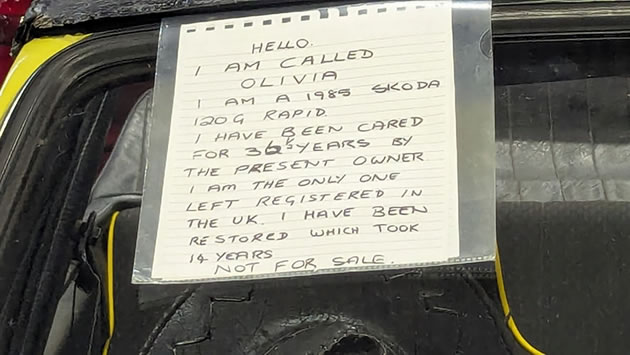 HELLO.
I AM CALLED
OLIVIA
I AM A 1985 SKODA
120G RAPID
I HAVE BEEN CARED
FOR YEARS BY
THE PRESENT OWNER
I AM THE ONLY ONE
LEFT REGISTERED IN
THE UK. I HAVE BEEN
RESTORED WHICH TOOK
14 YEARS
NOT FOR SALE.